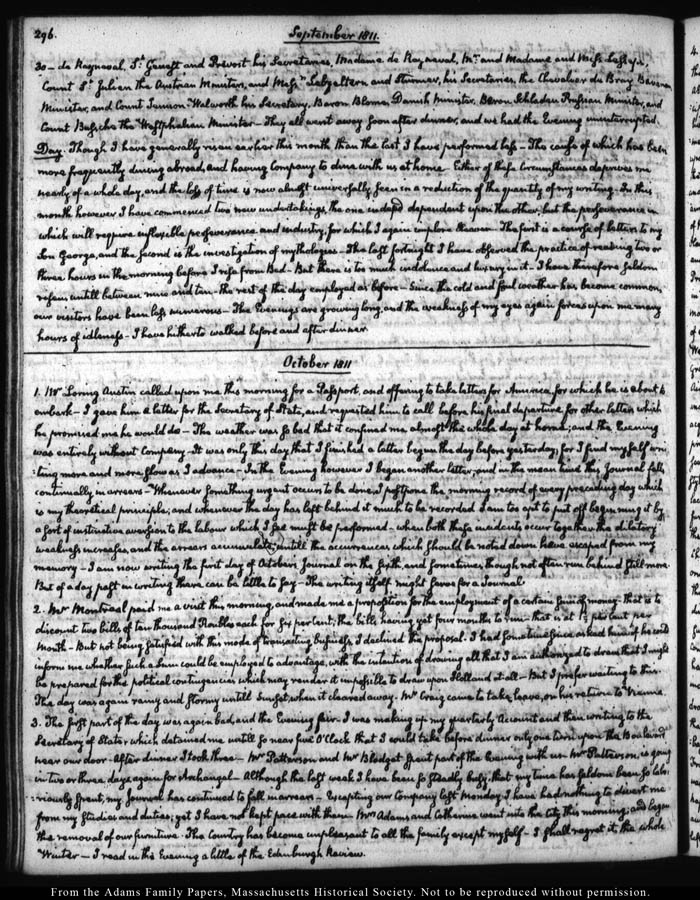 296.
September 1811.
30 - de Rayneval, St. Genest and Prevost his Secretaries, Madame de Rayneval, Mr. and Madame and Miss
Count St. Julien the Austrian Minister, and Messrs. Lebzeltern and Sturmer, his Secretaries, the Chevalier de Bray Bavarian
Minister, and Count Jennison Walworth his Secretary. Baron Blome, Danish Minister. Baron Schladen Prussian Minister, and
Count Bussche the Westphalian Minister - They all went away soon after dinner, and we had the Evening uninterrupted.
Day. Though I have generally risen earlier this month than the last I have performed less - The cause of which has been
more frequently dining abroad, and having Company to dine with us at home. Either of these circumstances deprives me
nearly of a whole day, and the loss of time is now almost universally seen in a reduction of the quantity of my writing. In this
month however I have commenced two new undertakings, the one indeed dependent upon the other; but the perseverance in
which will require inflexible perseverance and industry, for which I again implore Heaven - The first is a course of letters to my
Son George, and the second is the investigation of mythologies - The last fortnight I have observed the practice of reading two or
three hours in the morning before I rise from Bed - But there is too much indolence and luxury in it - I have therefore seldom
risen untill between nine and ten - The rest of the day employed as before - Since the cold and foul weather has become common,
our visitors have been less numerous - The Evenings are growing long, and the weakness of my eyes again forces upon me many
hours of idleness - I have hitherto walked before and after dinner.
October 1811
1. Mr Loring Austin called upon me this morning for a Passport, and offering to take letters for America, for which he is about to
embark - I gave him a letter for the Secretary of State, and requested him to call before his final departure, for other letters which
he promised me he would do - The weather was so bad that it confined me almost the whole day at home; and the Evening
was entirely without Company - It was only this day that I finished a letter begun the day before yesterday; for I find myself wri-
:ting more and more slow as I advance - In the Evening however I began another letter; and in the mean time this Journal falls
continually in arrears - Whenever something urgent occurs to be done I postpone the morning record of every preceding day which
is my theoretical principle; and whenever the day has left behind it much to be recorded I am too apt to put off beginning it by
a sort of instinctive aversion to the labour which I see must be performed - when both these incidents occur together the dilatory
weakness increases, and the arrears accumulate, untill the occurrences which should be noted down have escaped from my
memory - I am now writing the first day of October's Journal on the sixth, and sometimes, though not often run behind still more.
But of a day past in writing there can be little to say - The writing itself might serve for a Journal.
2. Mr Montreal paid me a visit this morning, and made me a proposition for the employment of a certain sum of money - that is to
discount two bills of ten thousand Roubles each for six per cent; the bills having yet four months to run - that is at 1½ per cent per
Month - But not being satisfied with this mode of transacting business I declined the proposal. I had sometime since asked him if he could
inform me whether such a sum could be employed to advantage, with the intention of drawing all that I am authorized to draw, that I might
be prepared for the political contingencies which may render it impossible to draw upon Holland at all - But I prefer waiting to this.
The day was again rainy and stormy untill Sunset, when it cleared away. Mr Craig came to take leave, on his return to Vienna.
3. The first part of the day was again bad, and the Evening fair. I was making up my quarterly Account and then writing to the
Secretary of State which detained me untill so near five O'Clock that I could take before dinner only one turn upon the Boulevard
near our door - After dinner I took three - Mr Patterson and Mr Blodget spent part of the Evening with us - Mr Patterson is going
in two or three days again for Archangel - Although the last week I have been so steadily busy, that my time has seldom been so labo-
:riously spent, my Journal has continued to fall in arrear - Excepting our Company last Monday I have had nothing to divert me
from my studies and duties; yet I have not kept pace with them - Mrs Adams and Catherine went into the city this morning, and began
the removal of our furniture - The Country has become unpleasant to all the family except myself - I shall regret it the whole
Winter - I read in the Evening a little of the Edinburgh Review.
From the Adams Family Papers, Massachusetts Historical Society. Not to be reproduced without permission.